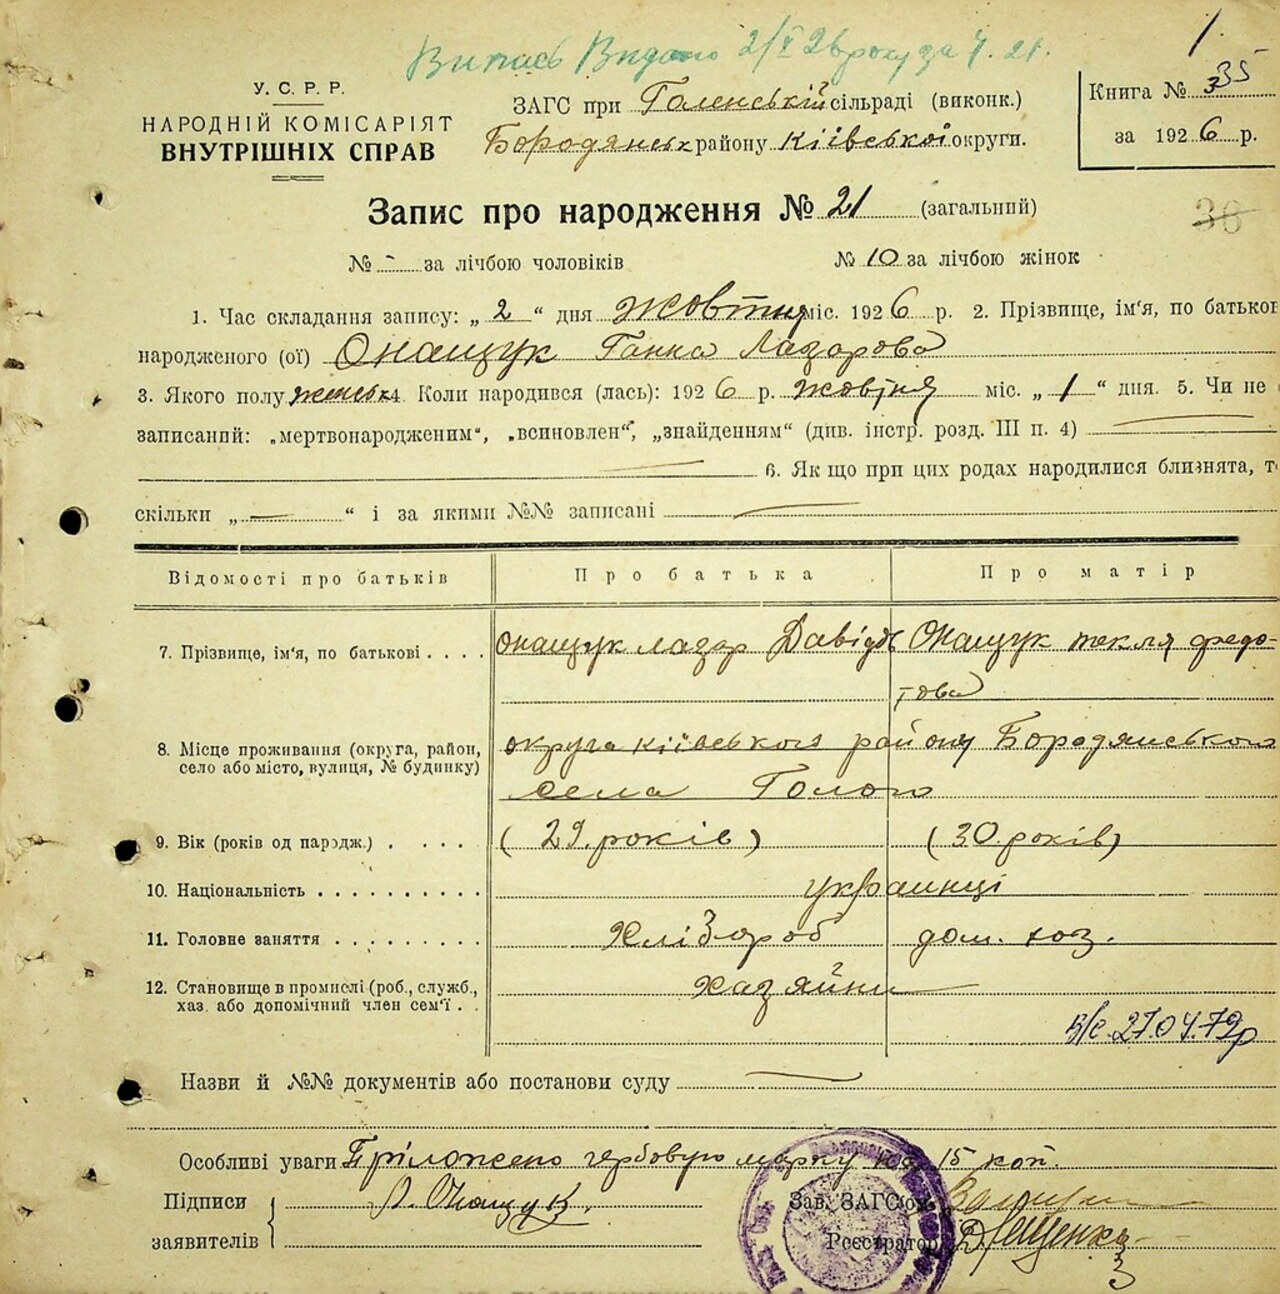 1.
Випись Видано 2/X 26 року за Ч. 21.
У. С. Р. Р.
НАРОДНІЙ КОМІСАРІЯТ
ВНУТРІШНІХ СПРАВ
ЗАГС при Галенській сільраді (виконк.)
Бородянськ району Київської округи.
Книга № 335
за 1926 р.
Запис про народження № 21 (загальний)
36
№ - за лічбою чоловіків № 10 за лічбою жінок
1. Час складання запису: „ 2 “ дня жовтня міс. 1926 р. 2. Прізвище, ім‘я, по батькові
народженого (ої) Онащук Ганна Лазарова
3. Якого полу женськ 4. Коли народився (лась): 1926 р. жовтня міс. „ 1 “ дня. 5. Чи не
записаний: „мертвонародженим“, „всиновлен“, „знайденням“ (див. інстр. розд. III п. 4)
6. Як що при цих родах народилися близнята, т
скільки „ — “ і за якими №№ записані —
Відомості про батьків Про батька Про матір
7. Прізвище, ім‘я, по батькові . . . . Онащук Лазар Давідов Онащук текля федо-
това
8. Місце проживання (округа, район,
село або місто, вулиця, № будинку)
округа київського району Бородянського
села Голого
9. Вік (років од народж.) . . . . . (29. років) (30. років)
10. Національність . . . . . . . . . . украинці
11. Головне заняття . . . . . . . . . Хлібороб дом. хоз.
12. Становище в промислі (роб., служб.,
хаз. або допомічний член сем‘ї . .
хазяйни
27.04.79р
Назви й №№ документів або постанови суду —
Особливі уваги Пріложено гербовую марку на 15 коп.
Підписи
заявителів
Л. Онащук.
Зав. ЗАГСом
Реєстратор